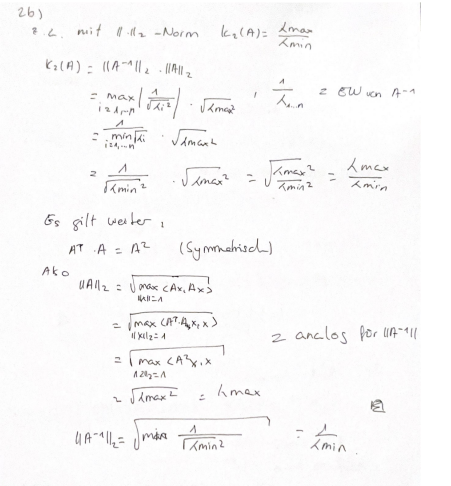 2b)
z.z. mit ||.||₂ -Norm K₂(A) = λmax / λmin
K₂(A) = ||A⁻¹||₂ · ||A||₂
= max i=1,...n | 1/√λi² | · √λmax² , 1/λ1...n = EW von A⁻¹
= 1 / min i=1,...n √λi · √λmax²
= 1/√λmin² · √λmax² = √(λmax²/λmin²) = λmax/λmin
Es gilt weiter:
AT · A = A² (Symmetrisch)
Also
||A||₂ = √max ||x||=1 (Ax, Ax)
= √max ||x||₂=1 (Aᵀ·A x, x)
= √max ||x||₂=1 (A²x, x
= √λmax² = λmax
= analog für ||A⁻¹||
||A⁻¹||₂ = √max 1/√λmin² = 1/λmin